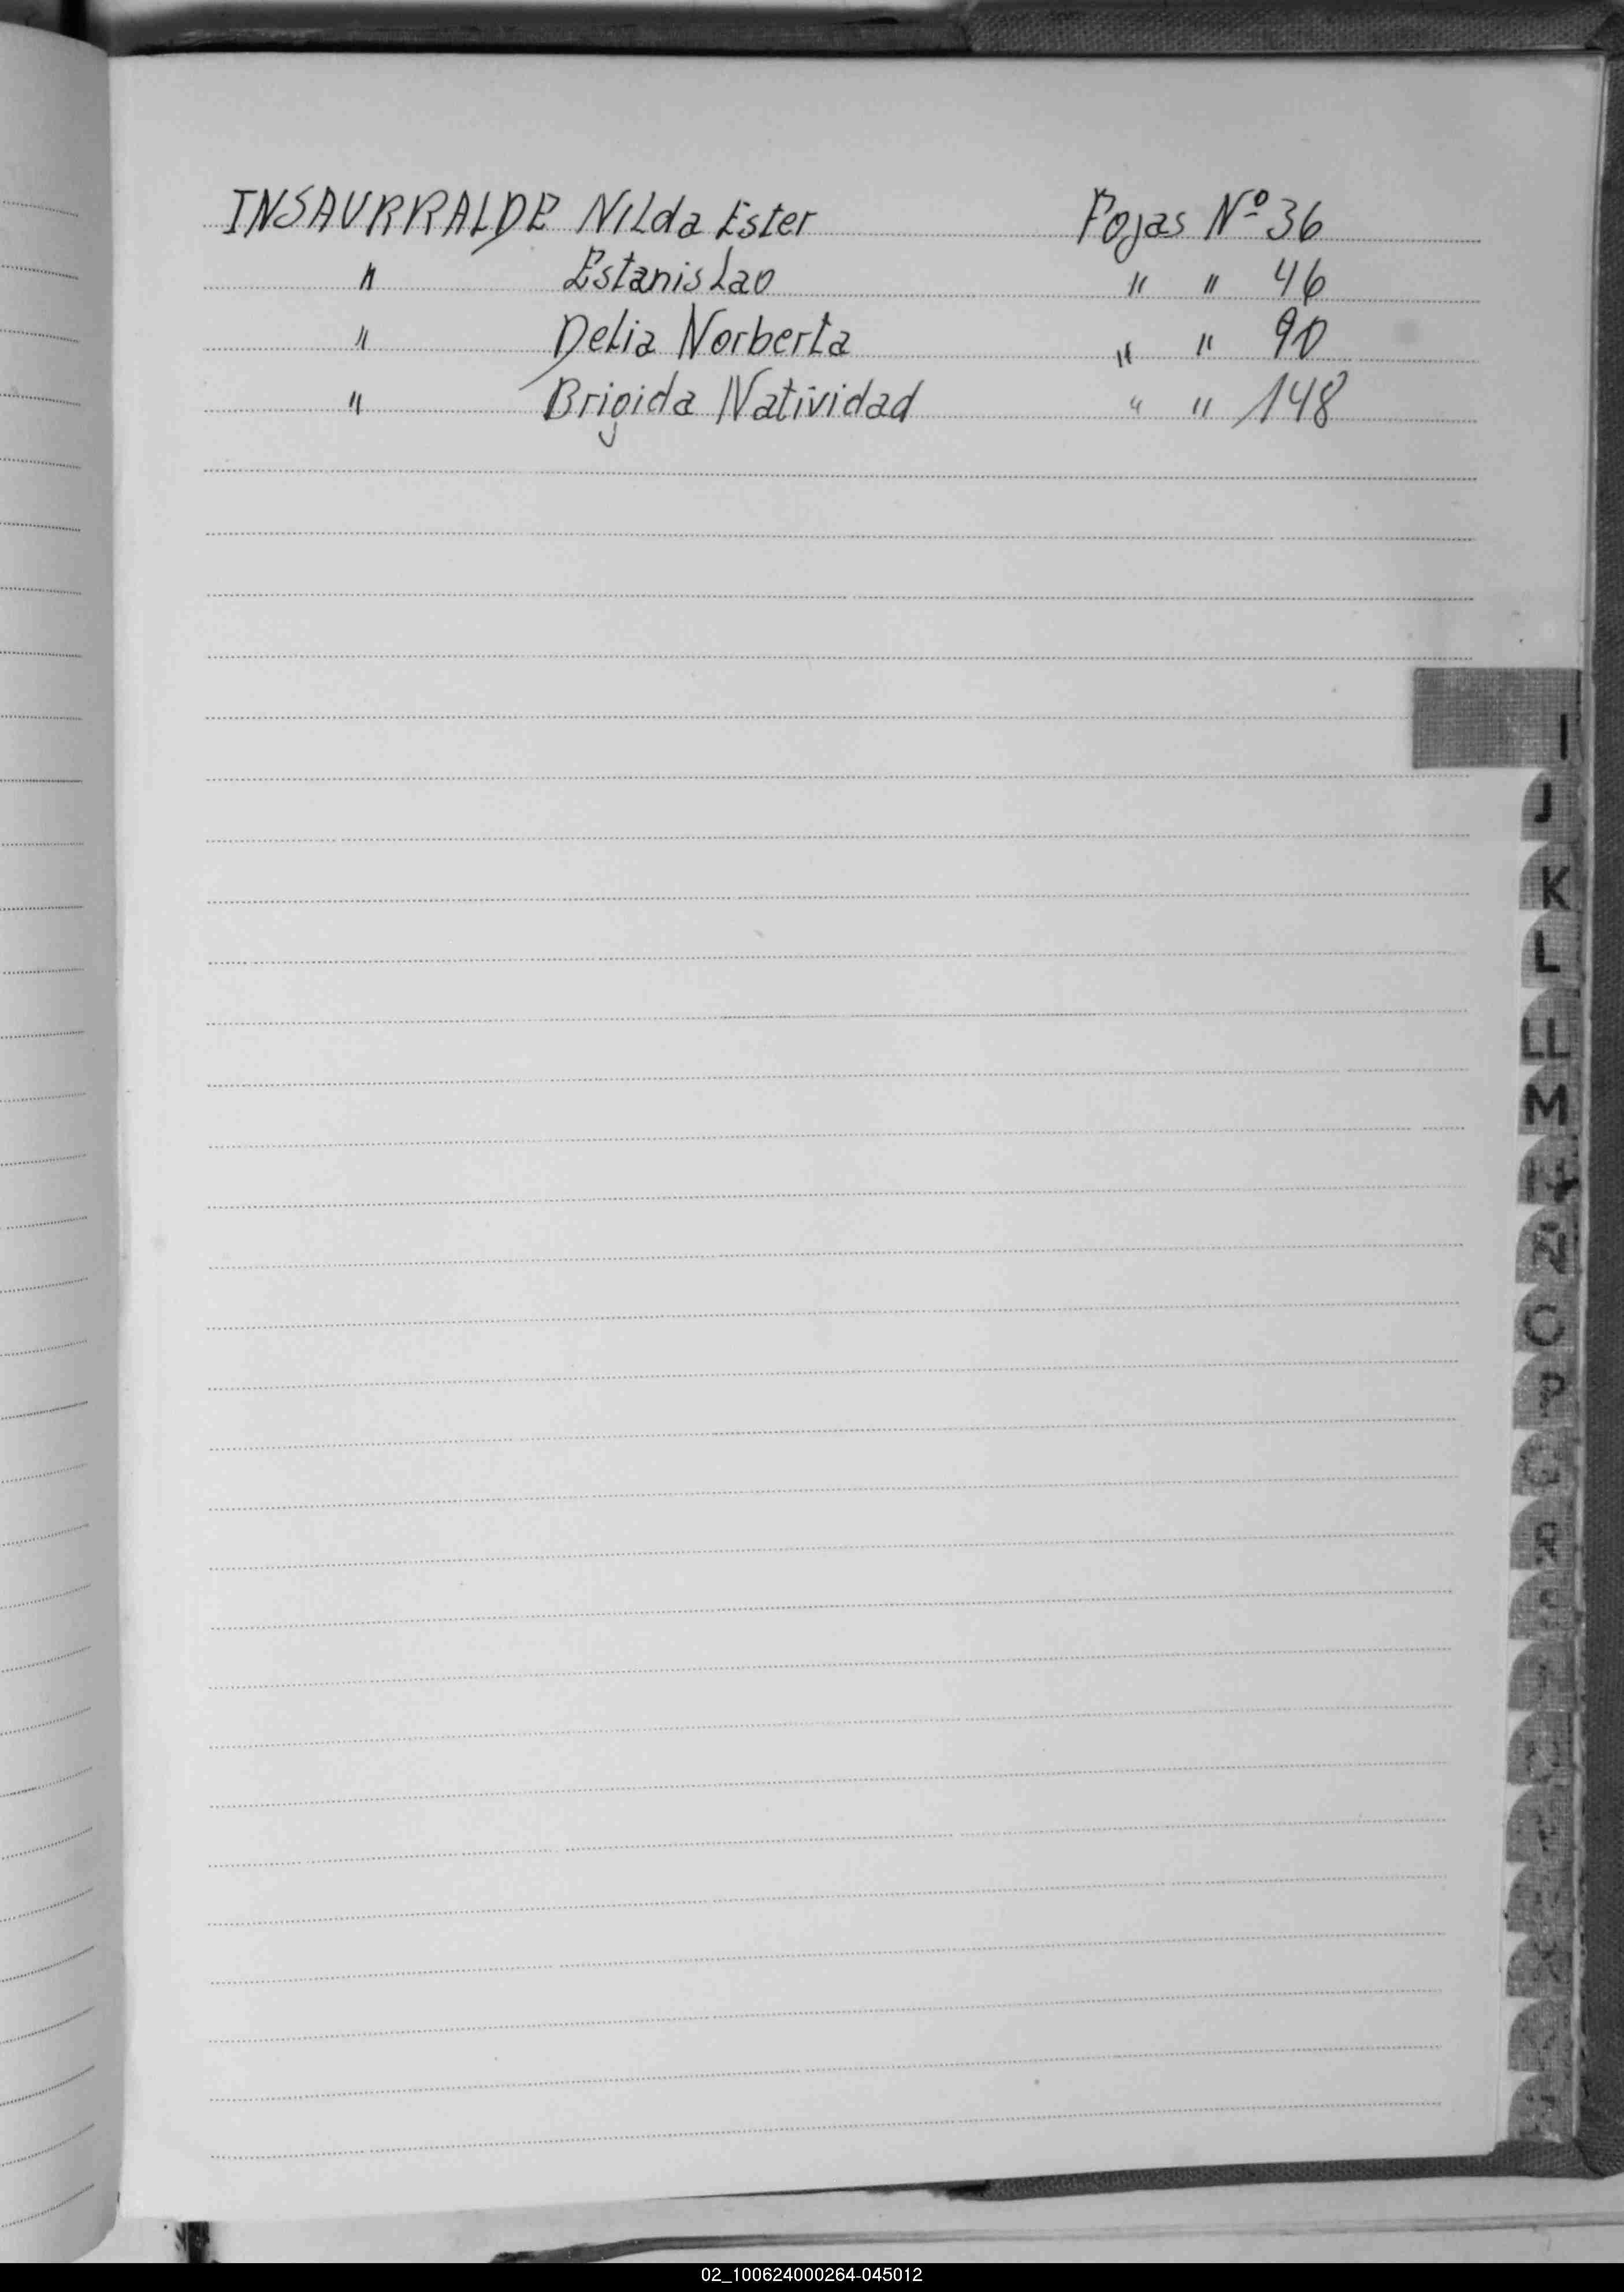 INSAURRALDE Nilda Ester Fojas Nº 36
" Estanislao " " 46
" Delia Norberta " " 90
" Brigida Natividad " " 148
I
J
K
L
LL
M
N
Ñ
O
P
Q
R
02_100624000264-045012